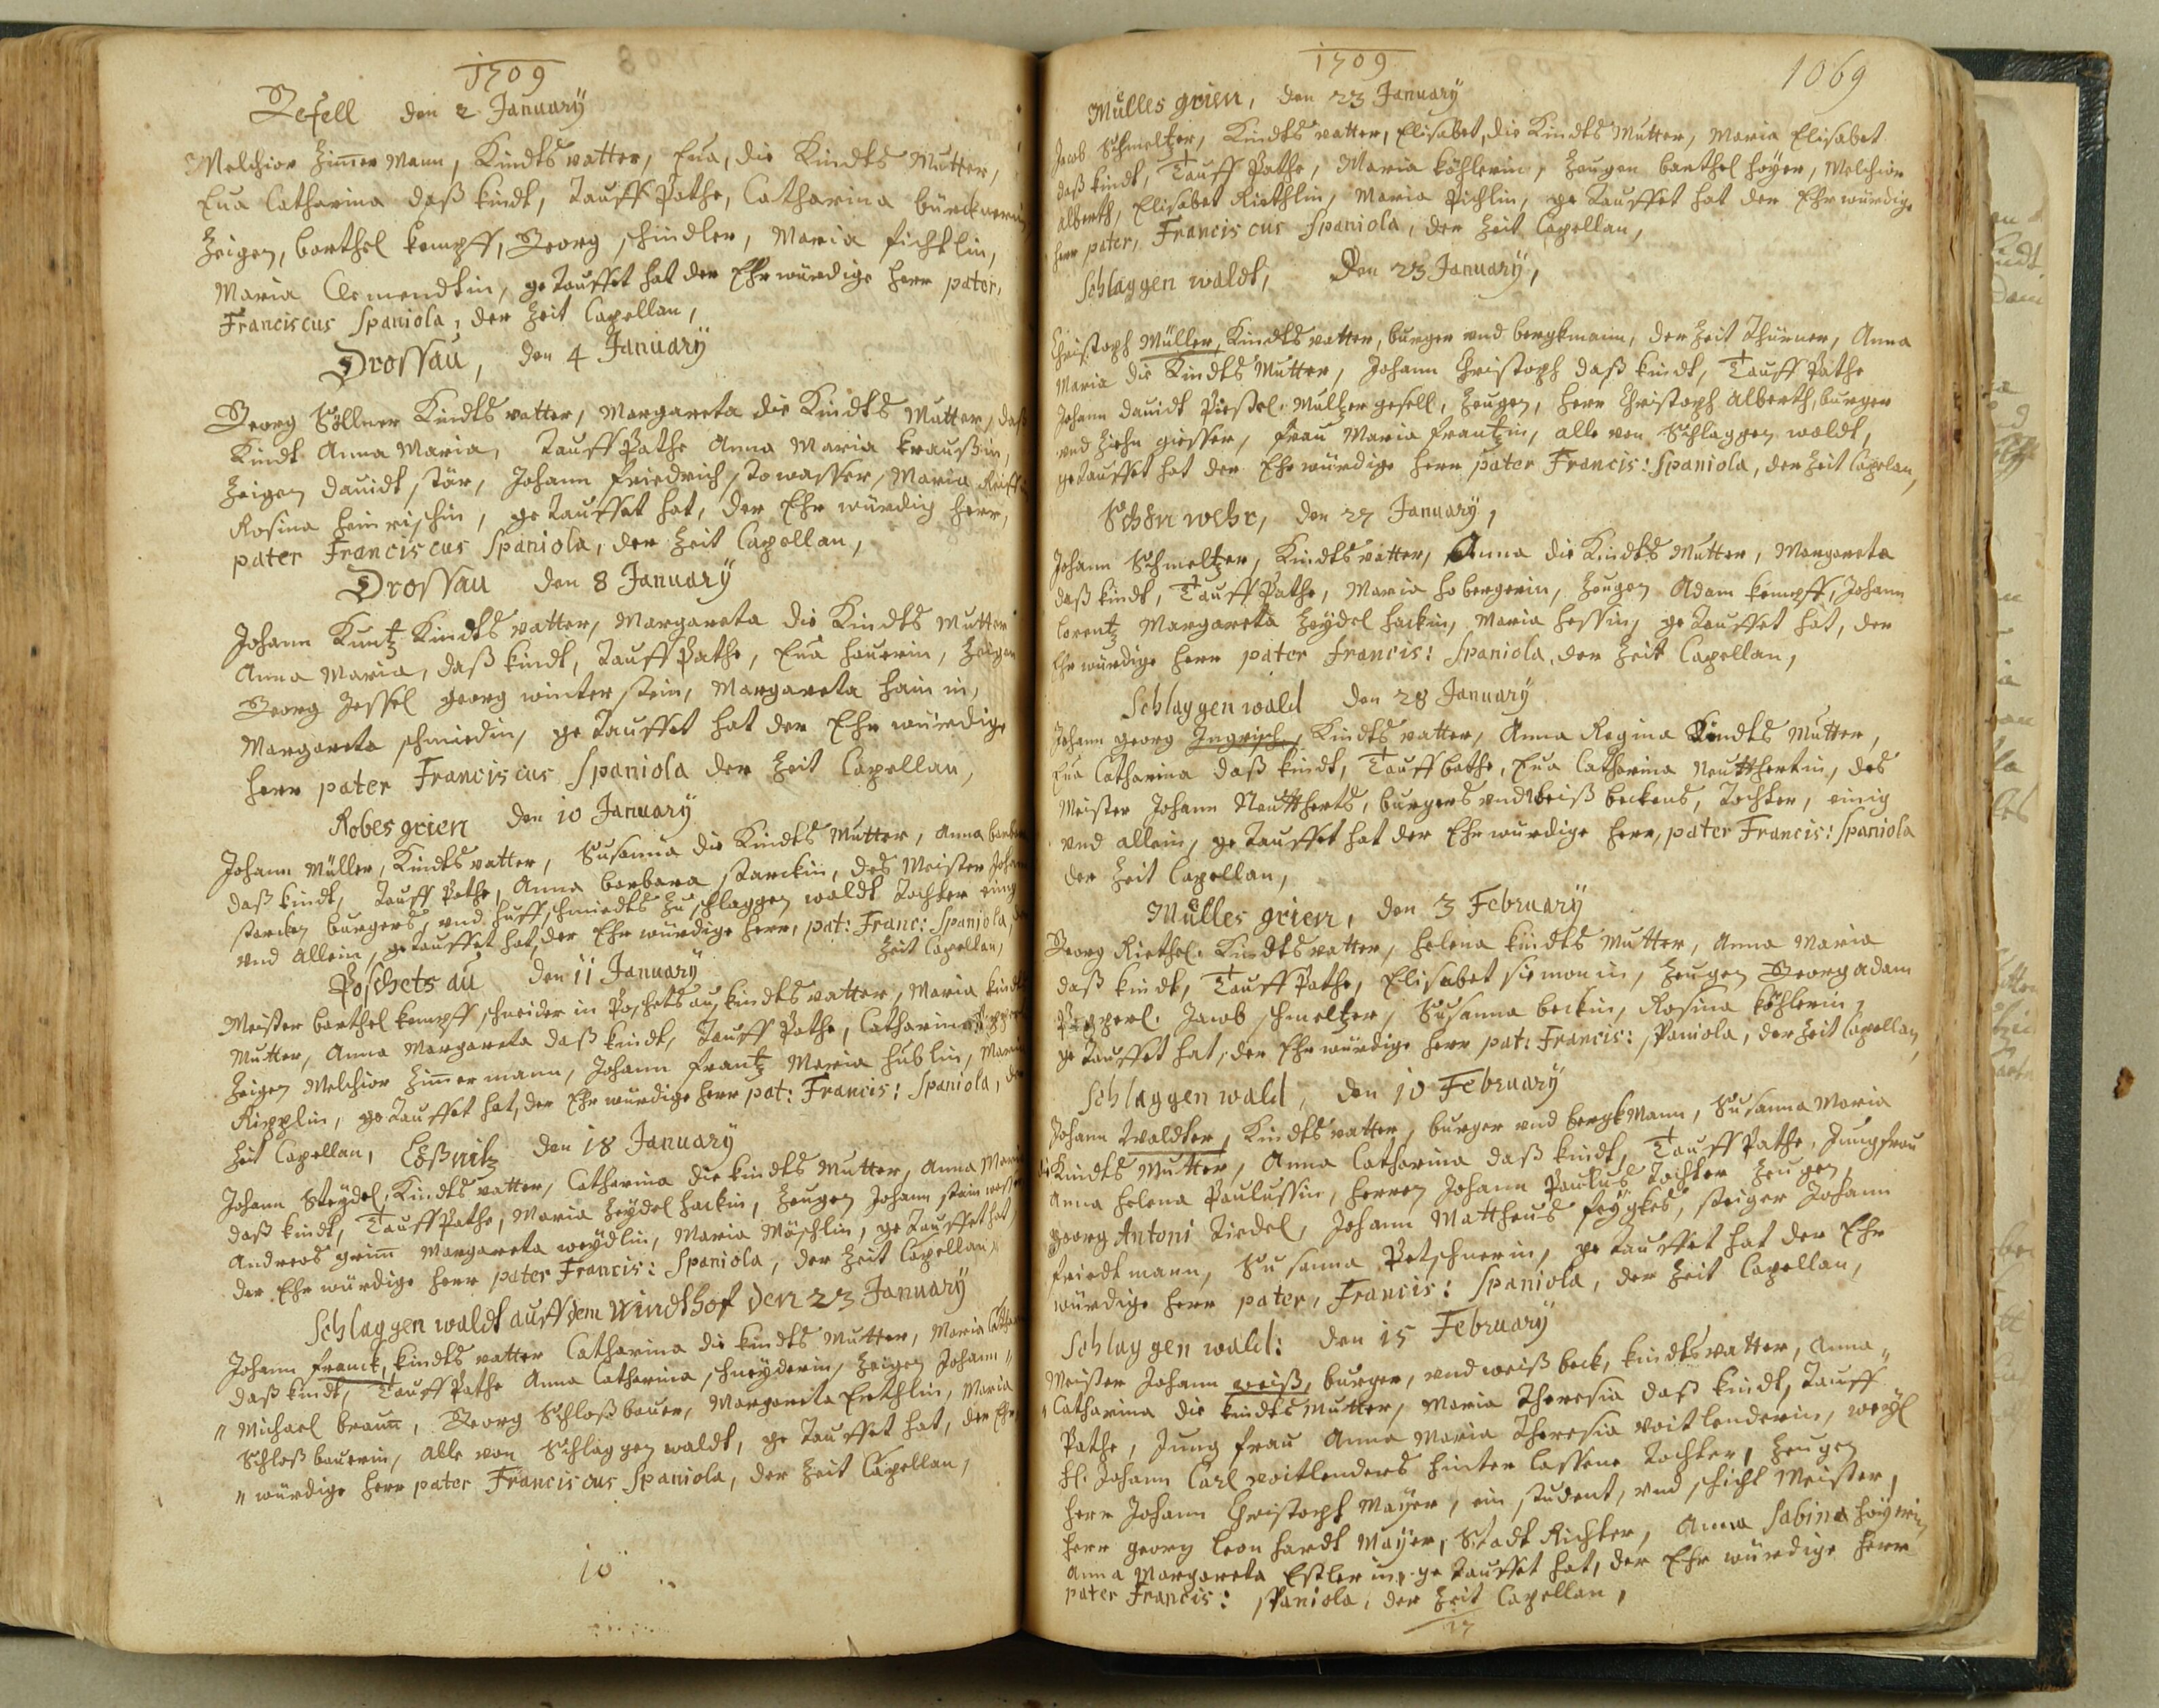 1709
Gefell den 2 Januarÿ
Melchior Zim̄er Mann, Kindts vatter, Eua, die Kindts Mutter,
Eua Catharina daß kindt, Tauff Pathe, Catharina
Zeigen, barthel kempff, Georg schindler, Maria fichtlin,
Maria Clementin, getauffet hat der Ehrwürdige herr pater,
Franciscus Spaniola, der Zeit Capellan,
Drossau, den 4 Januarÿ
Georg Söllner Kindts vatter, Margareta die Kindts Mutter, daß
Kindt Anna Maria, Tauff Pathe Anna Maria kraußin,
Zeigen dauidt stär, Johann friedrich stowasser, Maria
Rosina heinrischin, getauffet hat, der Ehr würdig herr,
pater Franciscus Spaniola, der Zeit Capellan,
Drossau den 8 Januarÿ
Johann Kuntz Kindts vatter, Margareta die Kindts Mutter
Anna Maria, daß kindt, Tauff Pathe, Eua hauerin, Zeigen
Georg Jessel georg winterstein, Margareta hainin,
Margareta schmiedin, getauffet hat der Ehr würdige
herr pater Franciscus Spaniola der Zeit Capellan,
Robesgrien den 10 Januarÿ
Johann Müller, Kindts vatter, Susanna die Kindts Mutter, Anna
daß kindt, Tauff Pathe, Anna barbara starckin, des Meister
starcken burgers, vnd huffschmiedts zu schlaggen waldt Tochter einig
vnd allein, getauffet hat, der Ehr würdige herr, pat: Franc: Spaniola, der
Zeit Capellan,
Poschets au den 11 Januarÿ
Meister barthel kempff schneider in Poschets au, kindts vatter, Maria kindts
Mutter, Anna Margareta daß kindt, Tauff Pathe, Catharina
Zeigen Melchior Zim̄ermann, Johann frantz Maria hublin,
Ripplin, getauffet hat, der Ehr würdige herr pat: Francis: Spaniola, der
Zeit Capellan, Lößnitz den 18 Januarÿ
Johann Seÿdel, Kindts vatter, Catharina die kindts Mutter, Anna Maria
daß kindt, Tauff Pathe, Maria Zeÿdel hackin, Zeugen Johann
Andreas grim̄ Margareta weÿdlin, Maria Möschlin, getauffet hat,
der Ehr würdige herr pater Francis: Spaniola, der Zeit Capellan,
Schlaggen waldt auff dem Windthof den 23 Januarÿ
Johann franck, kindts vatter Catharina die kindts Mutter, Maria
daß kindt, Tauff Pathe Anna Catharina schneÿderin, Zeigen Johann "
" Michael braun̄, Georg Schloßbauer, Margareta Erthlin, Maria
Schloßbauerin, alle von Schlaggen waldt, getauffet hat, der Ehr
" würdige herr pater Franciscus Spaniola, der Zeit Capellan,
10
1709
1069
Mülles grien, den 23 Januarÿ
Jacob Schmeltzer, Kindts vatter, Elisabet, die Kindts Mutter, Maria Elisabet
daß kindt, Tauff Pathe, Maria köhlerin, Zeugen barthel hoÿer, Melchior
alberth, Elisabet Riethlin, Maria Pichlin, getauffet hat der Ehrwürdige
herr pater, Franciscus Spaniola, der Zeit Capellan,
Schlaggen waldt, Den 23 Januarÿ,
Christoph Müller, Kindts vatter, burger vnd bergkmann, der Zeit Thürner, Anna
Maria die Kindts Mutter, Johann Christoph daß kindt, Tauff Pathe
Johann dauidt Piessel. Multzer gesell, Zeugen, herr Christoph Alberth, burger
vnd Ziehn giesser, frau Maria frantzin, alle von Schlaggen waldt,
getauffet hat der Ehrwürdige herr pater Francis: Spaniola, der Zeit Capelan,
Schön wehr, den 27 Januarÿ,
Johann Schmeltzer, Kindts vatter, Anna die Kindts Mutter, Margareta
daß kindt, Tauff Pathe, Maria hobergerin, Zeugen Adam kempff, Johann
lorentz Margareta Zeÿdel hackin, Maria hessin, getauffet hat, der
Ehrwürdige herr pater francis: Spaniola, der Zeit Capellan,
Schlaggen wald den 28 Januarÿ
Johann georg Ingrisch, Kindts vatter, Anna Regina Kindts Mutter,
Eua Catharina daß kindt, Tauff bathe, Eua Catharina Neutthertin, des
Meister Johann Neuttherts, burgers vnd weiß beckens, Tochter, einig
vnd allein, getauffet hat der Ehrwürdige herr, pater Francis: Spaniola
der Zeit Capellan,
Mülles grien, den 3 February
Georg Riethel. Kindts vatter, helena kindts Mutter, Anna Maria
daß kindt, Tauff Pathe, Elisabet siemonin, Zeugen Georg adam
Jacob schmeltzer, Susanna beckin, Rosina köhlerin,
getauffet hat, der Ehr würdige herr pat: Francis: spaniola, der Zeit Capellan,
Schlaggen wald, den 10 Februarÿ
Johann Waldter, Kindts vatter, burger vnd bergkMann, Susanna Maria
die Kindts Mutter, Anna Catharina daß kindt, Tauff Pathe, Jungfrau
Anna helena Paulussin, herren Johann Paulus Tochter Zeugen,
georg Antoni Tirdel, Johann Mattheus steiger Johann
friedtmann, Susanna Petschnerin, getauffet hat der Ehr
würdige herr pater, Francis: Spaniola, der Zeit Capellan,
Schlaggen wald: den 15 Februarÿ
Meister Johann weiß, burger, vnd weiß beck, kindts vatter, Anna "
" Catharina die kindts Mutter, Maria Theresia daß kindt, Tauff
Pathe, Jung frau Anna Maria Theresia voitlenderin, weÿl
H. Johann Carl voitlenders hinter lassene Tochter, Zeugen
herr Johann Christoph Maÿer, ein student, vnd schicht Meister,
herr georg leonhardt Maÿer, Stadt Richter, Anna Sabina hoÿerin,
Anna Margareta Estlerin, getauffet hat, der Ehr würdige herr
pater Francis: spaniola, der Zeit Capellan,
17